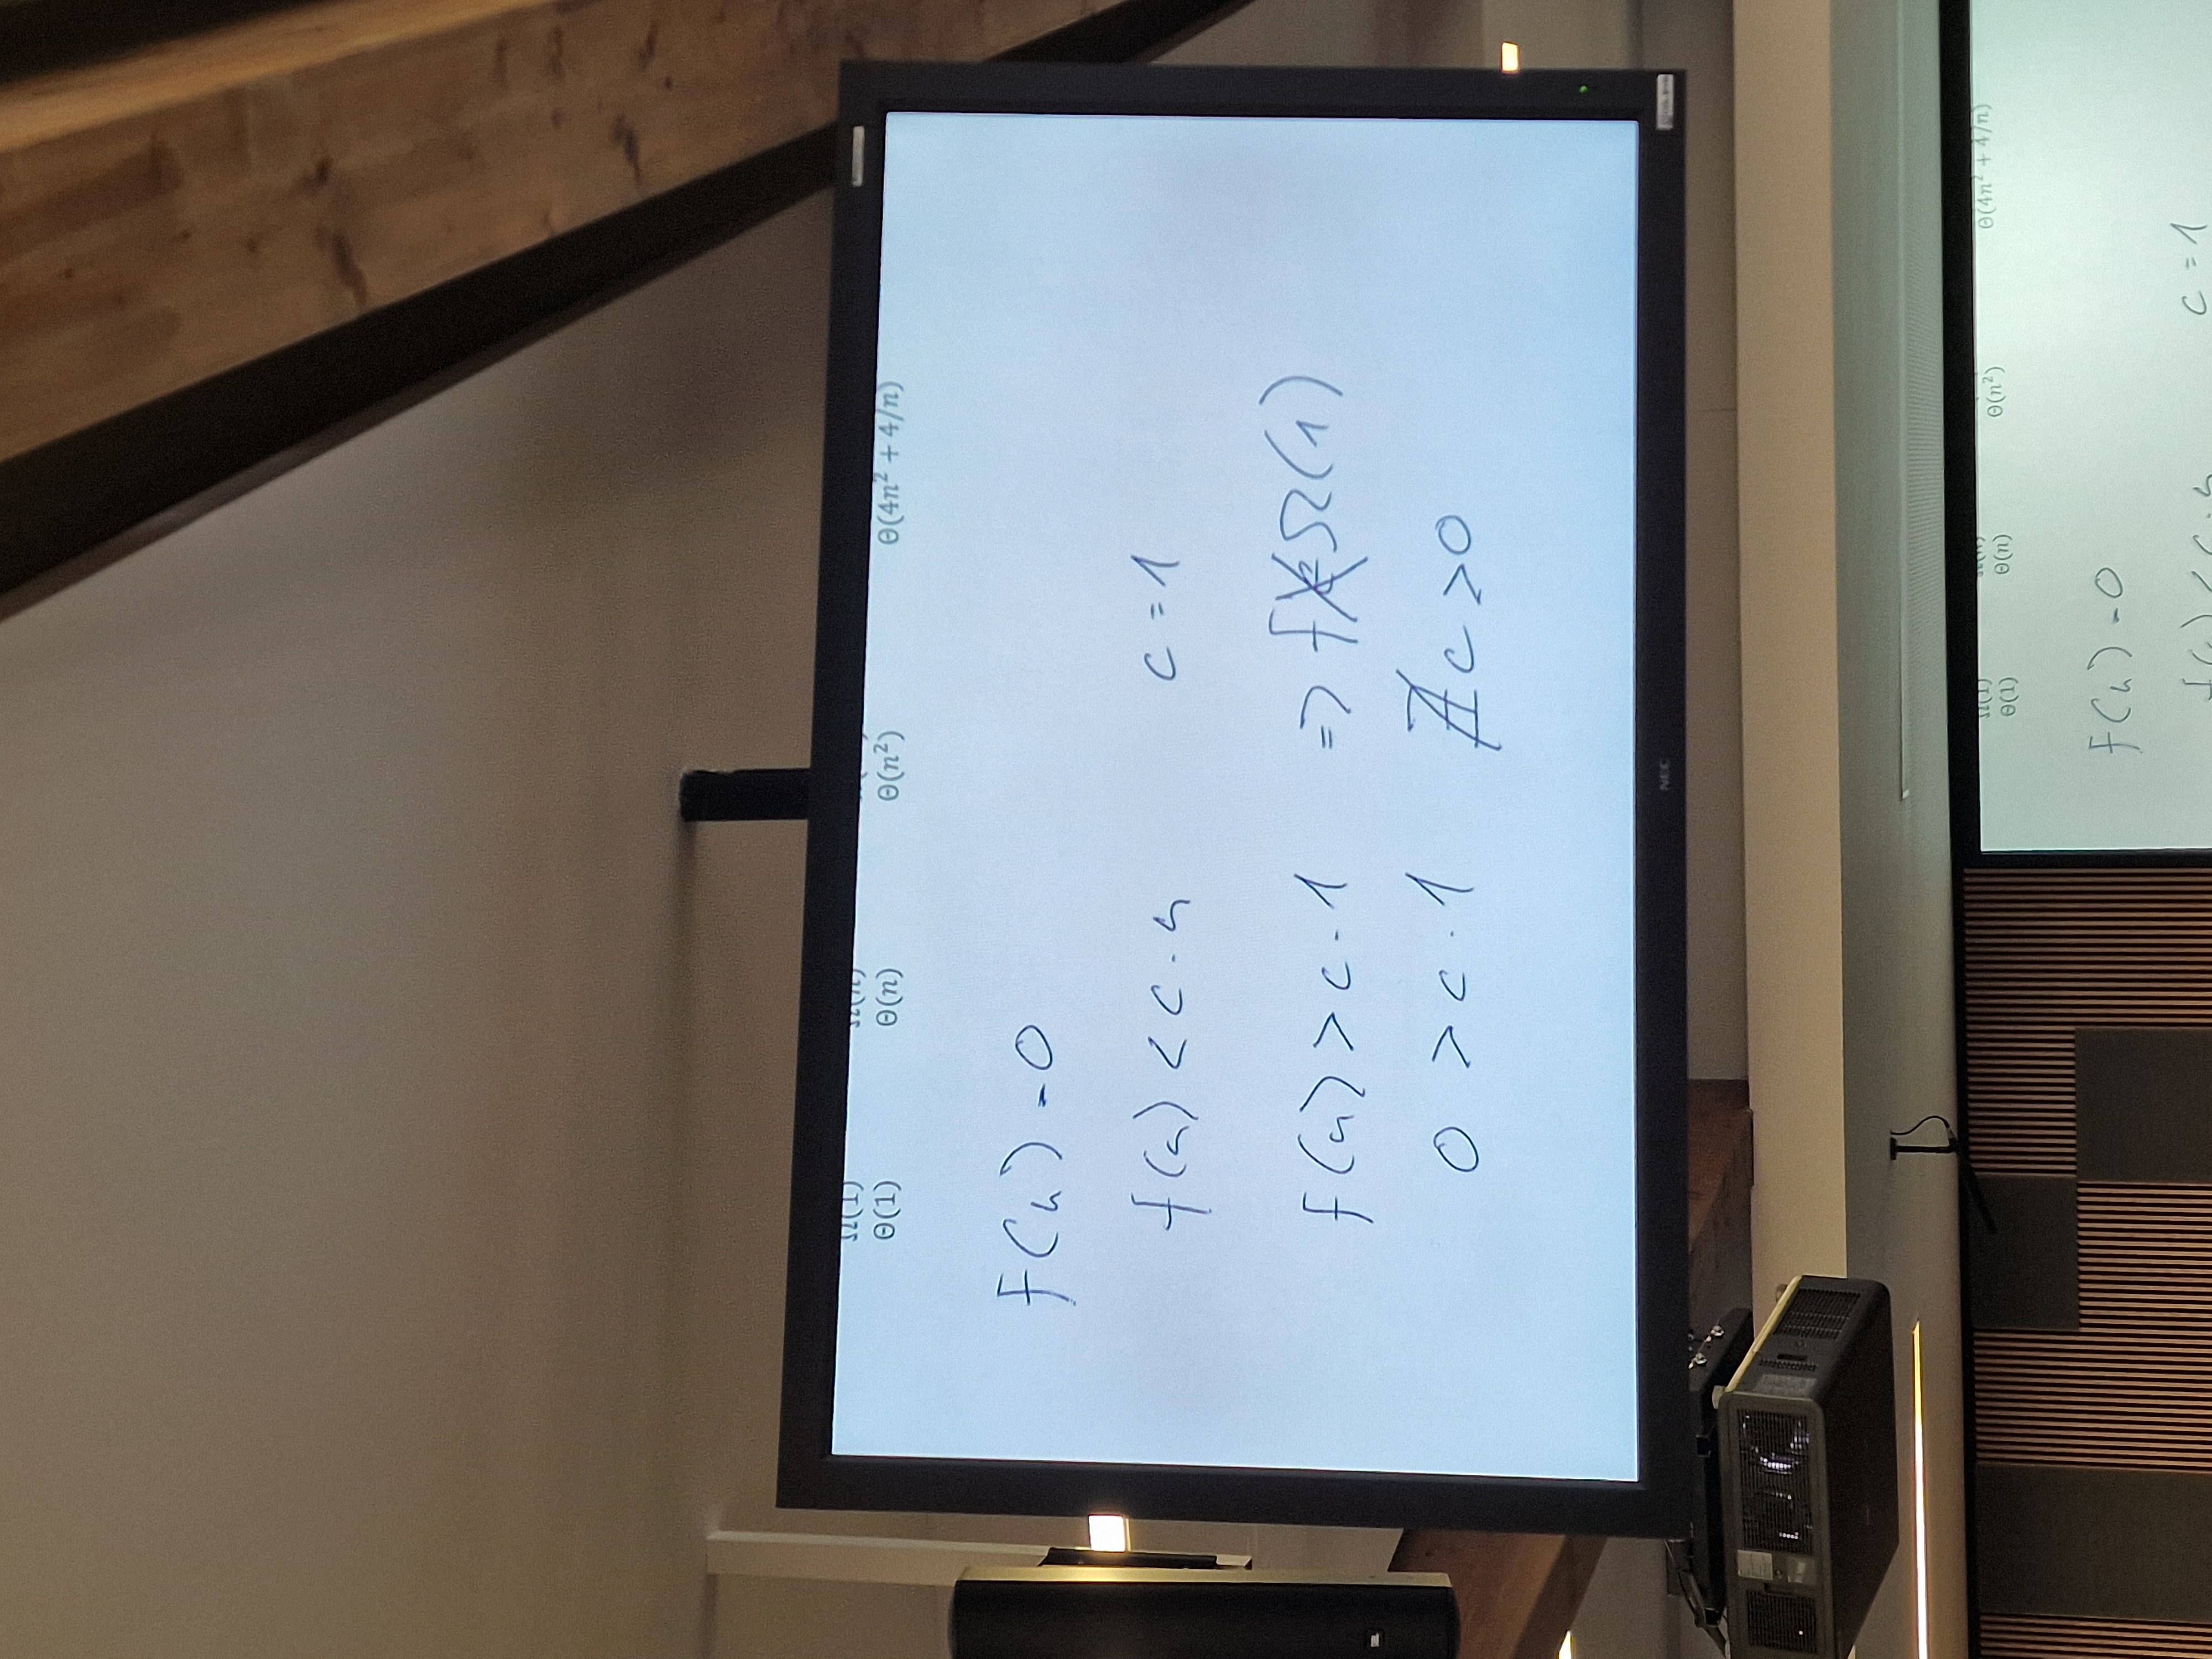 Ω(1) Ω(n)
Θ(1) Θ(n) Θ(n²) Θ(4n² + 4/n)
f(n) = 0
f(n) < c · n c = 1
f(n) > c · 1 => f ∉ Ω(1)
0 > c · 1 ∄ c > 0
NEC
Ω(1) Ω(n)
Θ(1) Θ(n) Θ(n²) Θ(4n² + 4/n)
f(n) = 0
f(n) < c · n c = 1